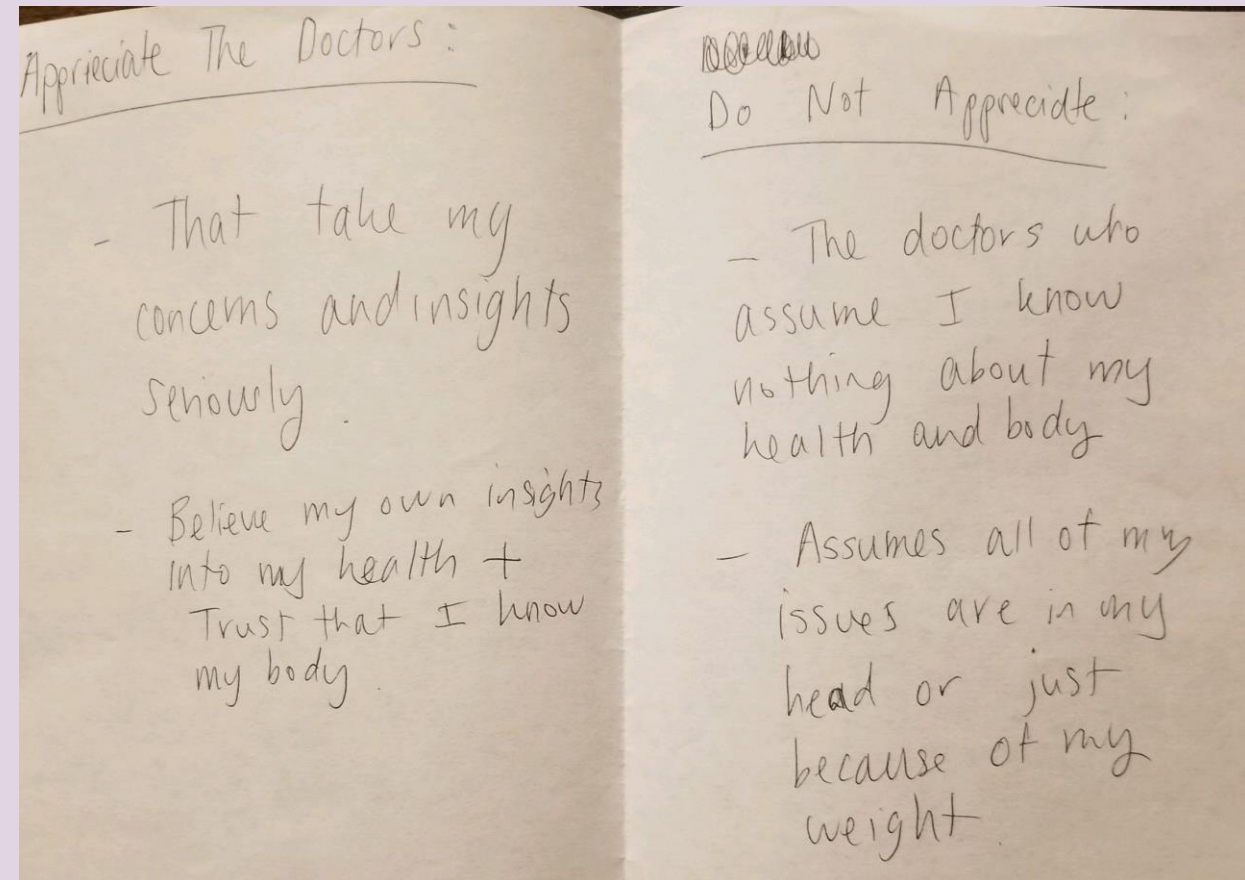 Apprieciate The Doctors:
- That take my
concerns and insights
seriously.
- Believe my own insights
into my health +
Trust that I know
my body.
Do Not Appreciate:
- The doctors who
assume I know
nothing about my
health and body
- Assumes all of my
issues are in my
head or just
because of my
weight.